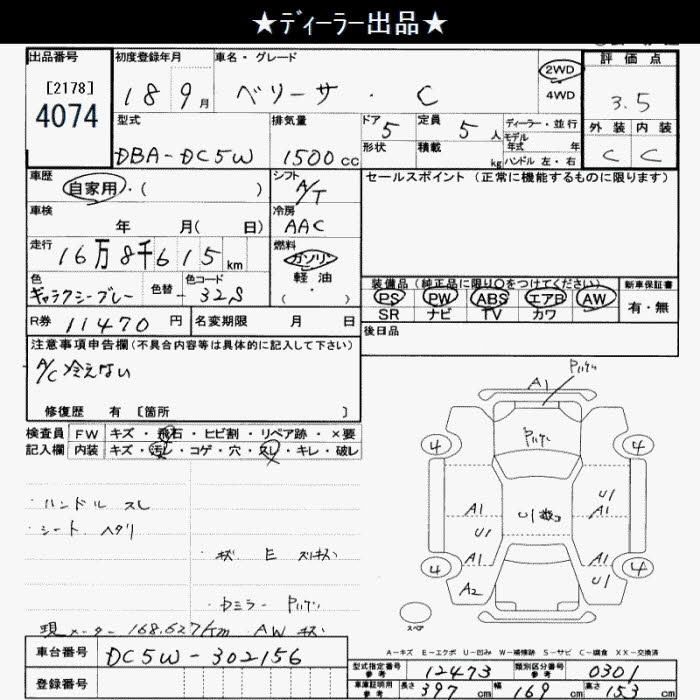 ★ディーラー出品★
出品番号 初度登録年月 車名・グレード 評価点
[2178] 18 9月 ベリーサ・C 2WD 3.5
4074 4WD
型式 排気量 ドア 5 定員 5人 ディーラー・並行 外装 内装
モデル
DBA-DC5W 1500cc 形状 積載 kg 年式 年 C C
ハンドル 左・右
車歴 自家用・( ) シフト A/T セールスポイント (正常に機能するものに限ります)
車検 冷房
年 月( 日) AAC
走行 16万8千615km 燃料
ガソリン・
軽油
( ・ )
色 色替 色コード 装備品 (純正品に限り○をつけてください) 新車保証書
ギャラクシーグレー - 32S PS PW ABS エアB AW 有・無
SR ナビ TV カワ
R券 11470円 名変期限 月 日 後日品
注意事項申告欄 (不具合内容等は具体的に記入して下さい)
A/C 冷えない
修復歴 有 [箇所 ]
検査員 FW キズ・飛石・ヒビ割・リペア跡・×要
記入欄 内装 キズ・汚レ・コゲ・穴・スレ・キレ・破レ
・ハンドル スレ
・シート ヘタリ
・キズ E スリキズ
・カミラー
現メーター 168.627km AWキズ
A1
4 4
A1 U1
U1 A1
U1
A1 A1
4 4
A2 U1
スペア
A-キズ E-エクボ U-凹み W-補修跡 S-サビ C-腐食 XX-交換済
車台番号 DC5W-302156
登録番号
型式指定番号 参考 12473 類別区分番号 参考 0301
車庫証明用 参考 長さ 397cm 幅 169cm 高さ 153cm